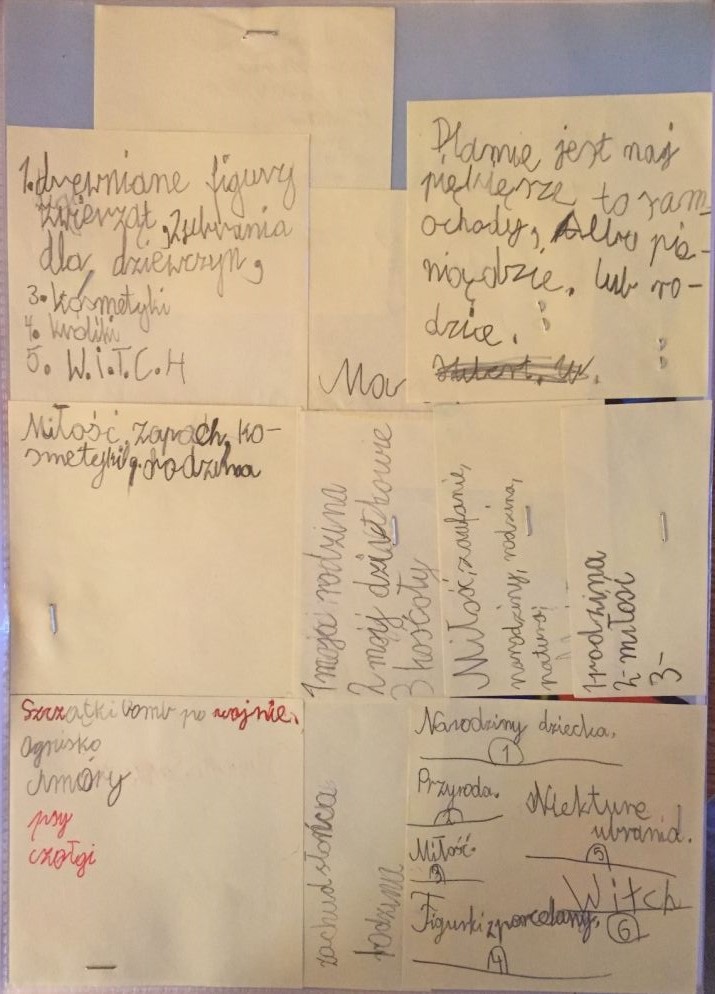 1. drewniane figury
zwierząt, 2 ubrania
dla dziewczyn,
3. kosmetyki
4. króliki
5. W.i.T.C.H
Dlamię jest naj
pięknięrze to sam-
ochody, Albo pie-
niądzie. lub ro-
dzice.
Ma
Miłość, zapach, ko-
smetyki, rodzina
1 moja rodzina
2 moij dziadkowie
3 kościoły
Miłość, zaufanie,
narodziny, rodzina,
natura,
1 rodzina
2- miłosć
3-
Szczątki bomb po wojnie.
ognisko
chmóry
psy
czołgi
zachud słońca
rodzina
Narodziny dziecka.
1
Przyroda.
2
Miłość.
3
Figurki z porcelany.
4
Niekture
ubrania.
5
Witch
6